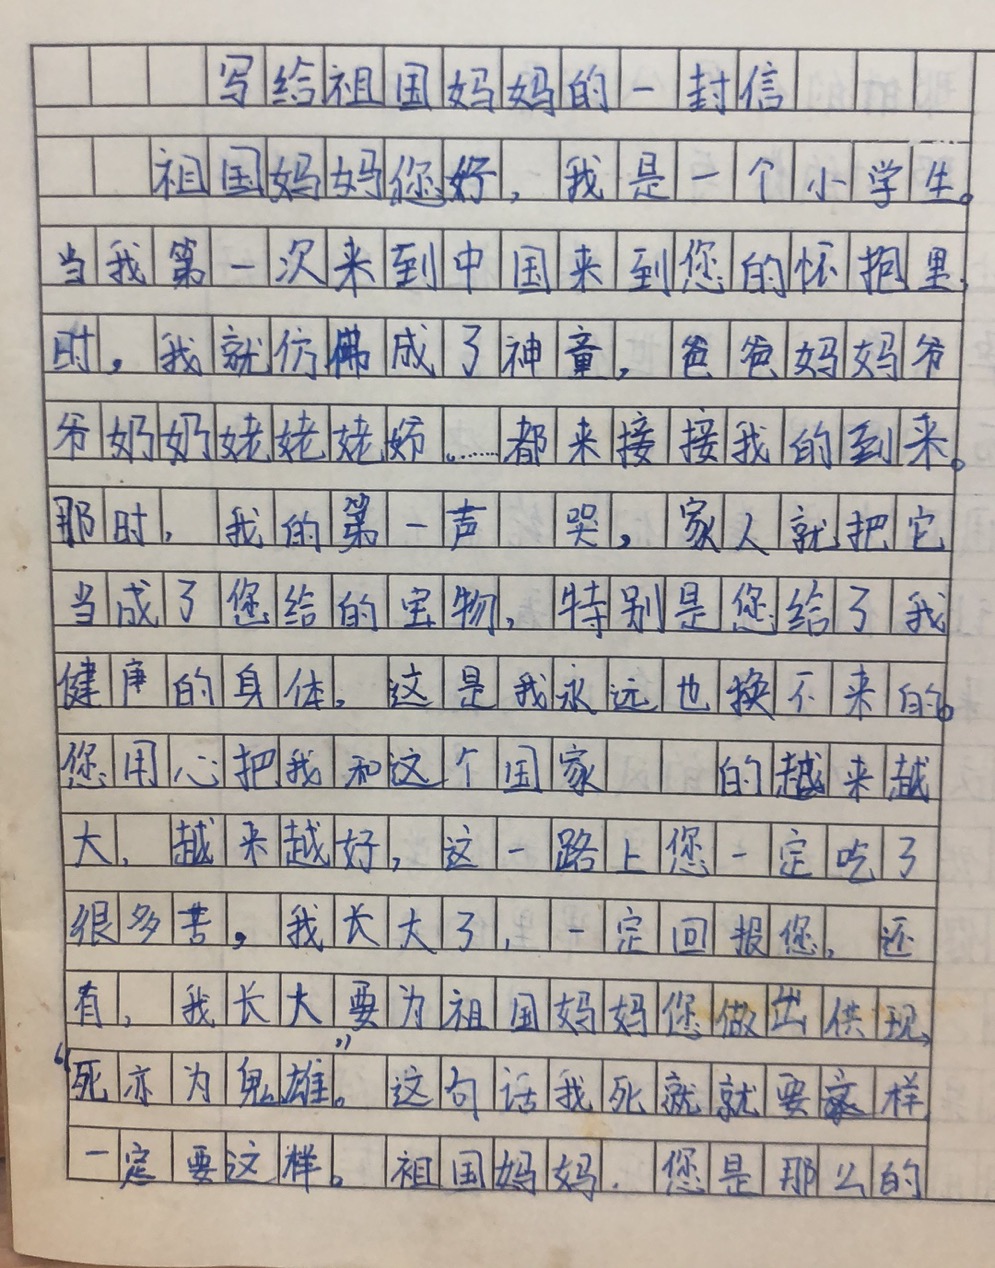 写给祖国妈妈的一封信
祖国妈妈您好，我是一个小学生。
当我第一次来到中国来到您的怀抱里，
时，我就仿佛成了神童，爸爸妈妈爷
爷奶奶姥姥姥姥……都来接接我的到来。
那时，我的第一声哭，家人就把它
当成了您给的宝物，特别是您给了我
健康的身体，这是我永远也换不来的。
您用心把我和这个国家的越来越
大，越来越好，这一路上您一定吃了
很多苦，我长大了，一定回报您，还
有，我长大要为祖国妈妈您做出供现，
“死亦为鬼雄”。这句话我死就就要这样，
一定要这样。祖国妈妈，您是那么的